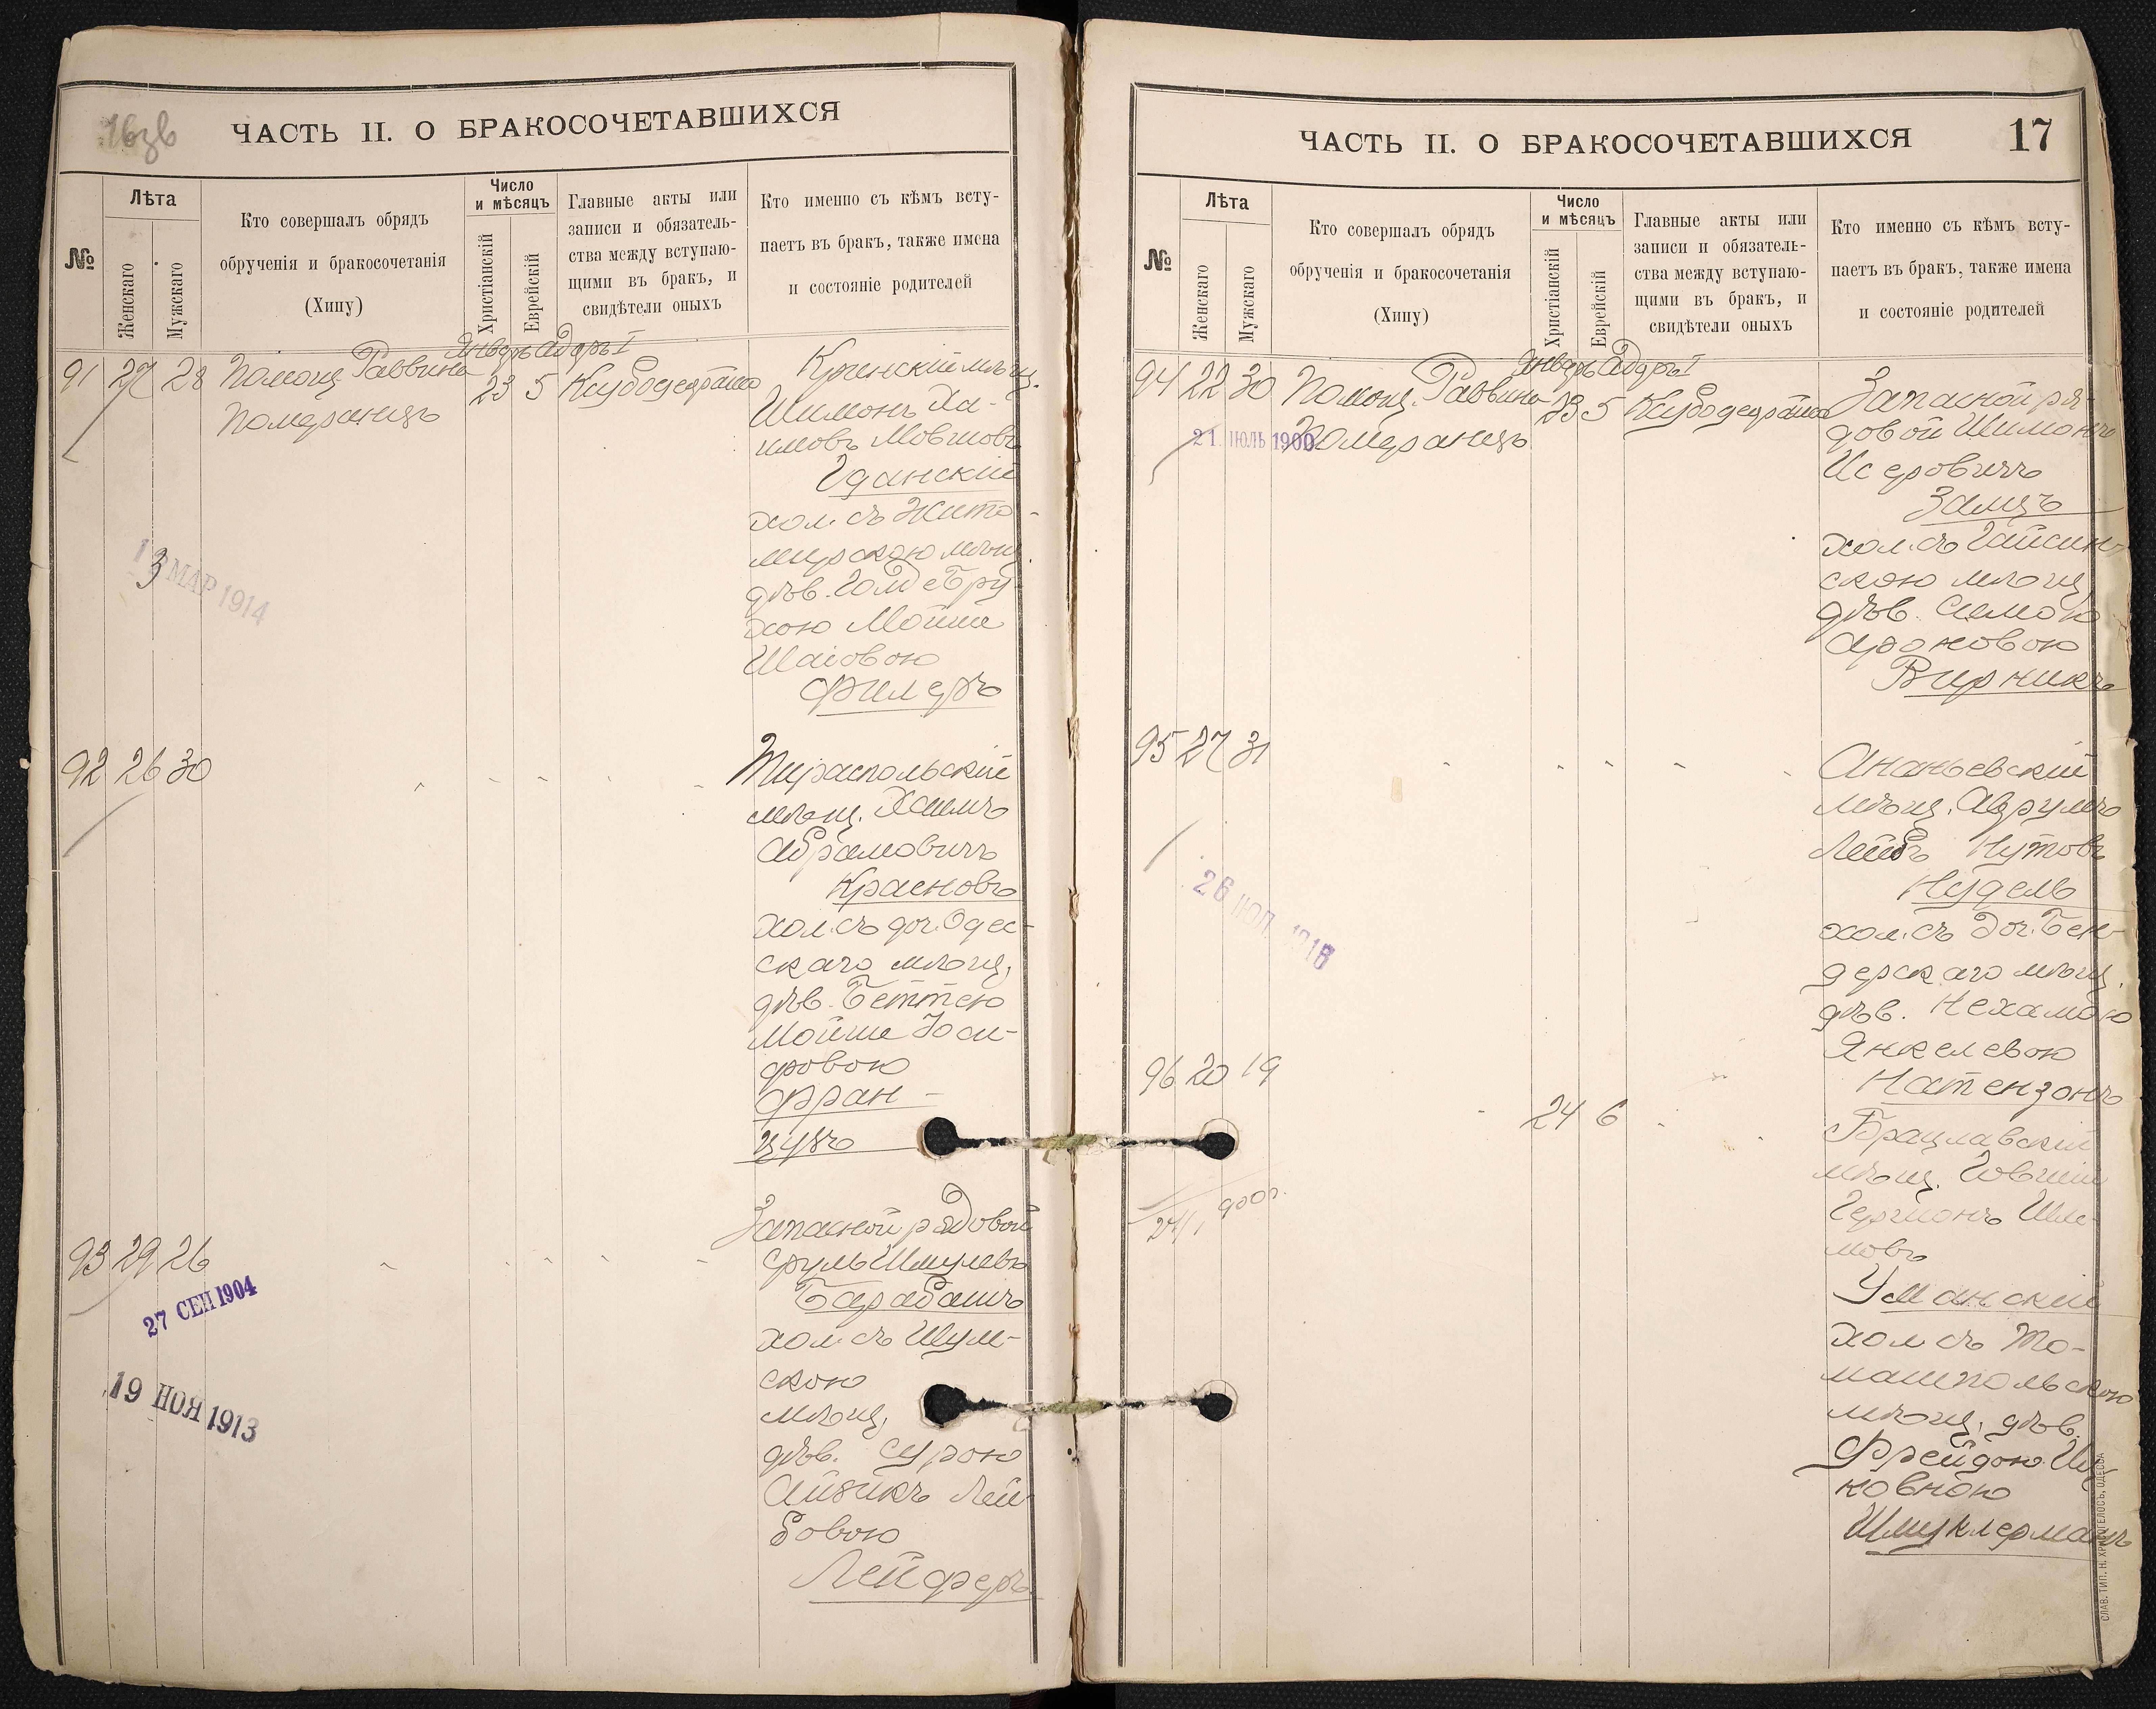 16зв
ЧАСТЬ II. О БРАКОСОЧЕТАВШИХСЯ
№
Лѣта
Женскаго
Мужскаго
Кто совершалъ обрядъ
обрученія и бракосочетанія
(Хипу)
Число
и мѣсяцъ
Христіанскій
Еврейскій
Главные акты или
записи и обязатель-
ства между вступаю-
щими въ бракъ, и
свидѣтели оныхъ
Кто именно съ кѣмъ всту-
паетъ въ бракъ, также имена
и состояніе родителей
Январь Адаръ I
91 27 28 Помощ. Раввина 23 5
Померанцъ
мѣщ.
Шимонъ Ха-
имовъ Мовшовъ
Гданскій
хол. съ Жито-
мирскою мѣщ.
дѣв. Голде Бру-
хою Мойше
Шаіовою
Филеръ
3
1 МАР 1914
92 26 30
Тираспольскій
мѣщ. Хаимъ
Абрамовичъ
Красновъ
хол. съ доч. Одес-
скаго мѣщ.
дѣв. Беттею
Мойше Іоси-
фовою
Фран-
цузъ
93 29 26
Запасной рядовой
Сруль Шмулевъ
Барабашъ
хол. съ Шум-
скою
мѣщ.
дѣв. Сурою
Айзикъ Лей-
бовою
Лейферъ
27 СЕН 1904
19 НОЯ 1913
ЧАСТЬ II. О БРАКОСОЧЕТАВШИХСЯ
17
№
Лѣта
Женскаго
Мужскаго
Кто совершалъ обрядъ
обрученія и бракосочетанія
(Хипу)
Число
и мѣсяцъ
Христіанскій
Еврейскій
Главные акты или
записи и обязатель-
ства между вступаю-
щими въ бракъ, и
свидѣтели оныхъ
Кто именно съ кѣмъ всту-
паетъ въ бракъ, также имена
и состояніе родителей
Январь Адаръ I
94 22 30 Помощ. Раввина 23 5
Померанцъ
21 ІЮЛЬ 1900
Запасной ря-
довой Шимонъ
Исеровичъ
Замцъ
хол. съ Гайсин-
скою мѣщ.
дѣв. Симою
Ароновою
Вирникъ
95 27 31
Ананьевскій
мѣщ. Аврумъ
Лейбъ Нутовъ
Нудель
хол. съ доч. Бен-
дерскаго мѣщ.
дѣв. Нехамою
Янкелевою
Натензонъ
26 ІЮЛ 1916
96 20 19
24 6
Брацлавскій
мѣщ. Говшій
Гершонъ Шле-
мовъ
Уманскій
хол съ То-
машпольскою
мѣщ. дѣв.
Фрейдою Иц-
ковною
Шмуклерманъ
СЛАВ. ТИП. Н. ХРИСОГЕЛОСЪ, ОДЕССА